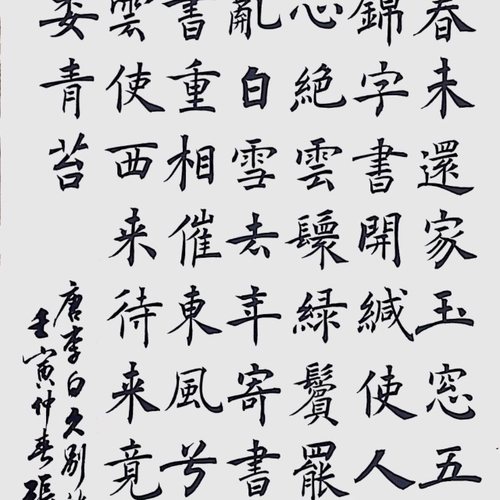 春未還家玉窓五
錦字書開緘使人
心絕雲鬟綠鬢罷
亂白雪去年寄書
書重相催東風兮
雲使西来待来竟
委青苔
唐李白久別
壬寅仲春張